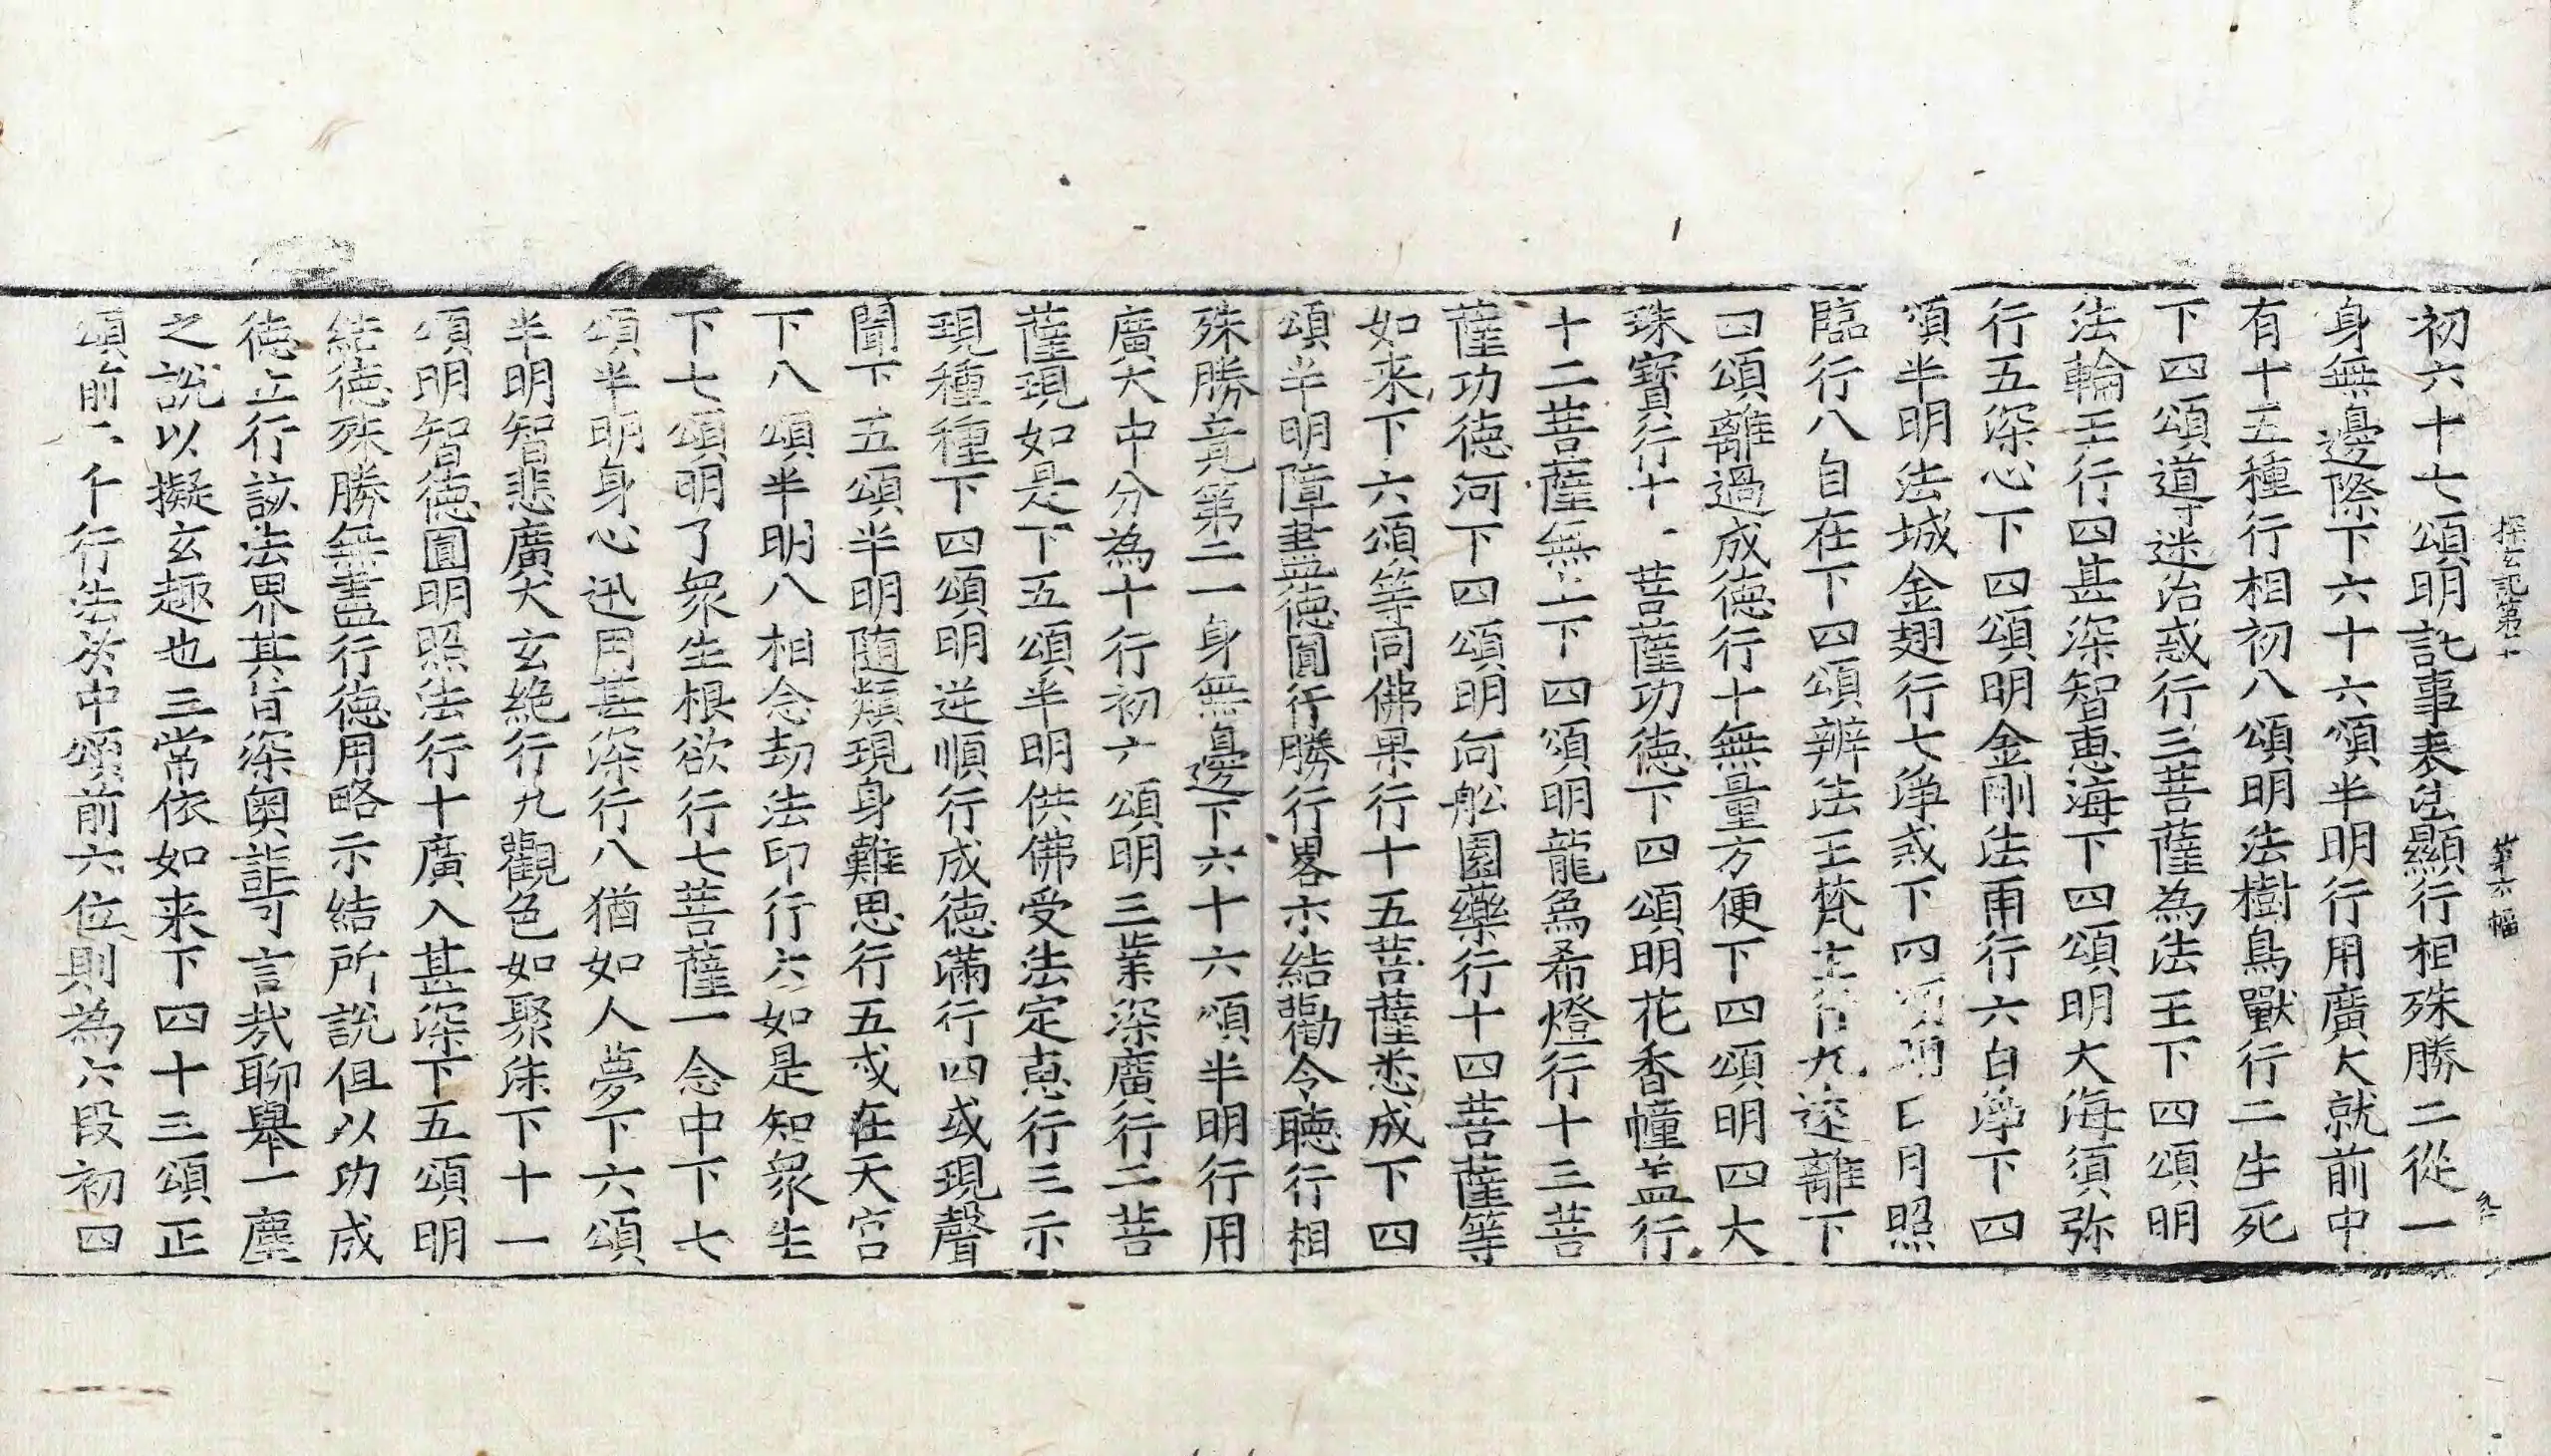 探玄記第十 第六幅
初六十七頌明託事表法顯行相殊勝二從一
身無邊際下六十六頌半明行用廣大就前中
有十五種行相初八頌明法樹鳥獸行二生死
下四頌導迷治惑行三菩薩為法王下四頌明
法輪王行四甚深智惠海下四頌明大海須弥
行五深心下四頌明金剛法雨行六白淨下四
頌半明法城金翅行七淨惑下四頌明日月照
臨行八自在下四頌辨法王梵王行九遠離下
四頌離過成徳行十無量方便下四頌明四大
珠寶行十一菩薩功徳下四頌明花香幢盖行
十二菩薩無上下四頌明龍為希燈行十三菩
薩功徳河下四頌明河舩園藥行十四菩薩等
如来下六頌等同佛果行十五菩薩悉成下四
頌半明障盡徳圓行勝行畧示結勸令聽行相
殊勝竟第二一身無邊下六十六頌半明行用
廣大中分為十行初六頌明三業深廣行二菩
薩現如是下五頌半明供佛受法定惠行三示
現種種下四頌明逆順行成徳滿行四或現聲
聞下五頌半明随類現身難思行五或在天宮
下八頌半明八相念劫法印行六如是知衆生
下七頌明了衆生根欲行七菩薩一念中下七
頌半明身心迅用甚深行八猶如人夢下六頌
半明智悲廣大玄絶行九觀色如聚沫下十一
頌明智徳圓明照法行十廣入甚深下五頌明
結徳殊勝無盡行徳用略示結所說但以功成
徳立行該法界其旨深奥詎可言哉聊舉一塵
之說以擬玄趣也三常依如来下四十三頌正
頌前六十行法於中頌前六位則為六段初四